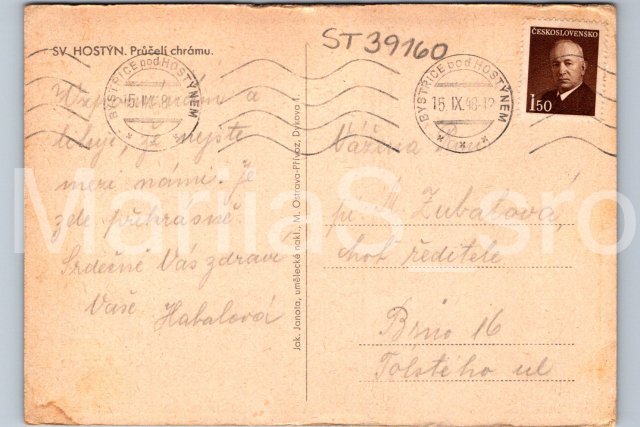 SV. HOSTÝN. Průčelí chrámu.
ST 39160
ČESKOSLOVENSKO
1 50
BYSTŘICE pod HOSTÝNEM
BYSTŘICE pod HOSTÝNEM
15. IX. 48-12
Vzpomínám a
lituji, že nejste
mezi námi. Je
zde překrásně.
Srdečně Vás zdraví
Vaše Habalová
Jak. Janota, umělecké nakl., M. Ostrava-Přívoz, Dykova 1.
Vážená
pí. M. Zubalová
choť ředitele
Brno 16
Tolstého ul
MarijaS_sro